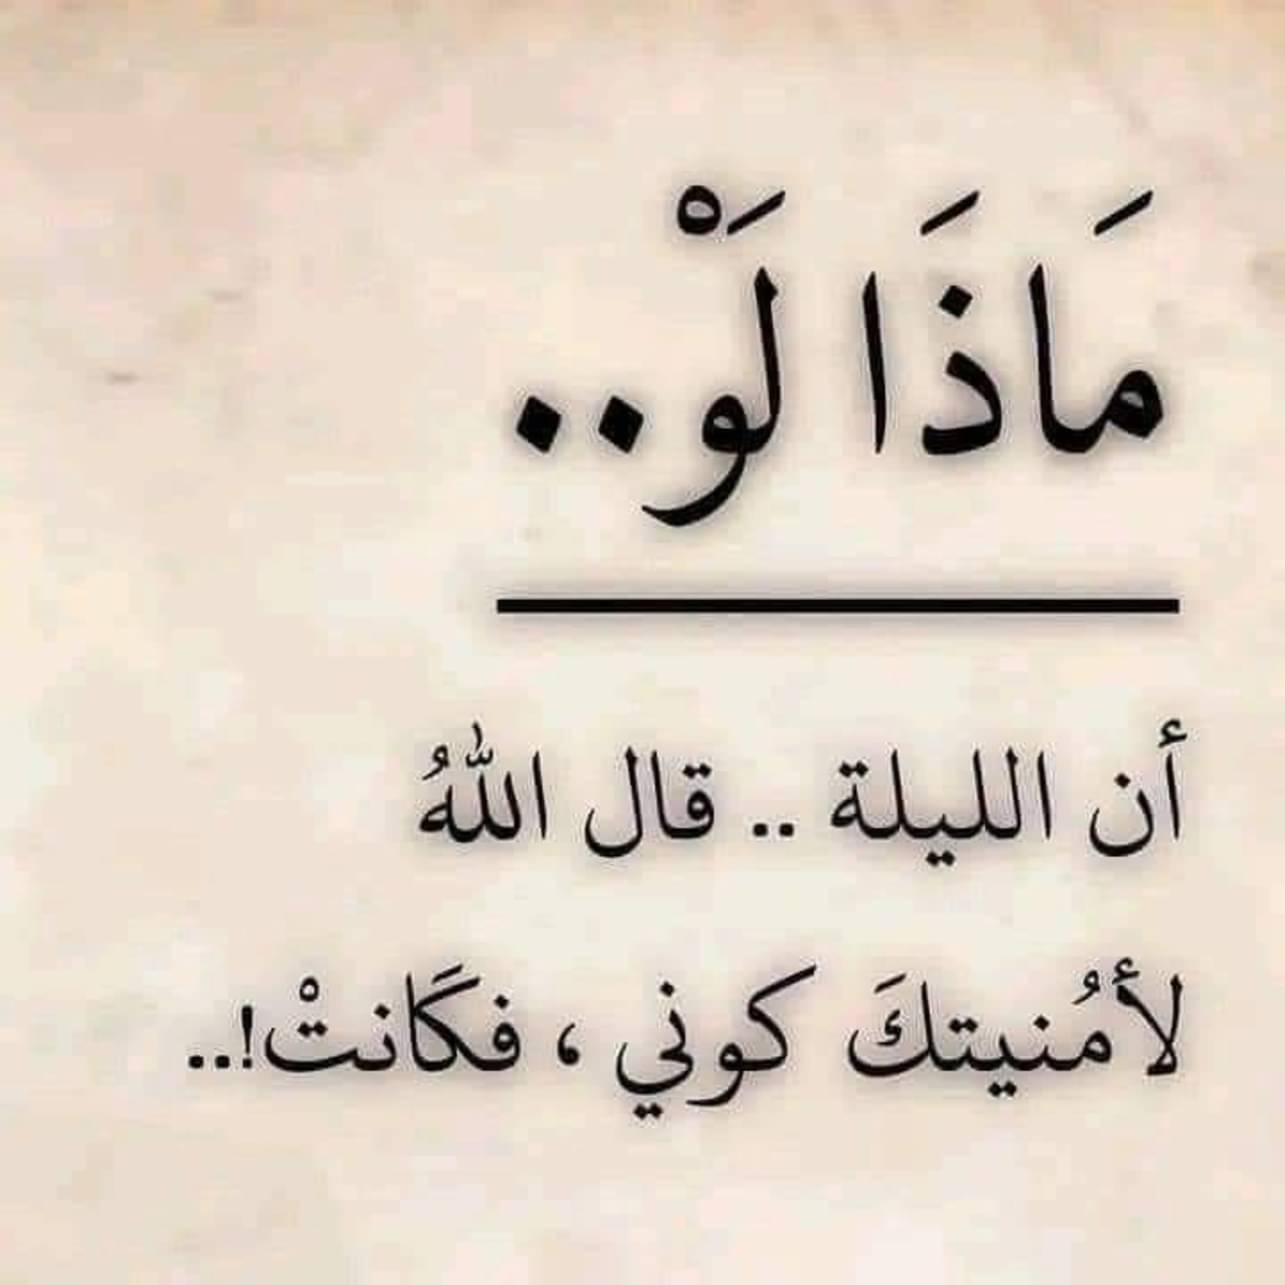 مَاذَا لَوْ..
أن الليلة .. قال اللهُ
لأمُنيتكَ كوني ، فكَانتْ!..